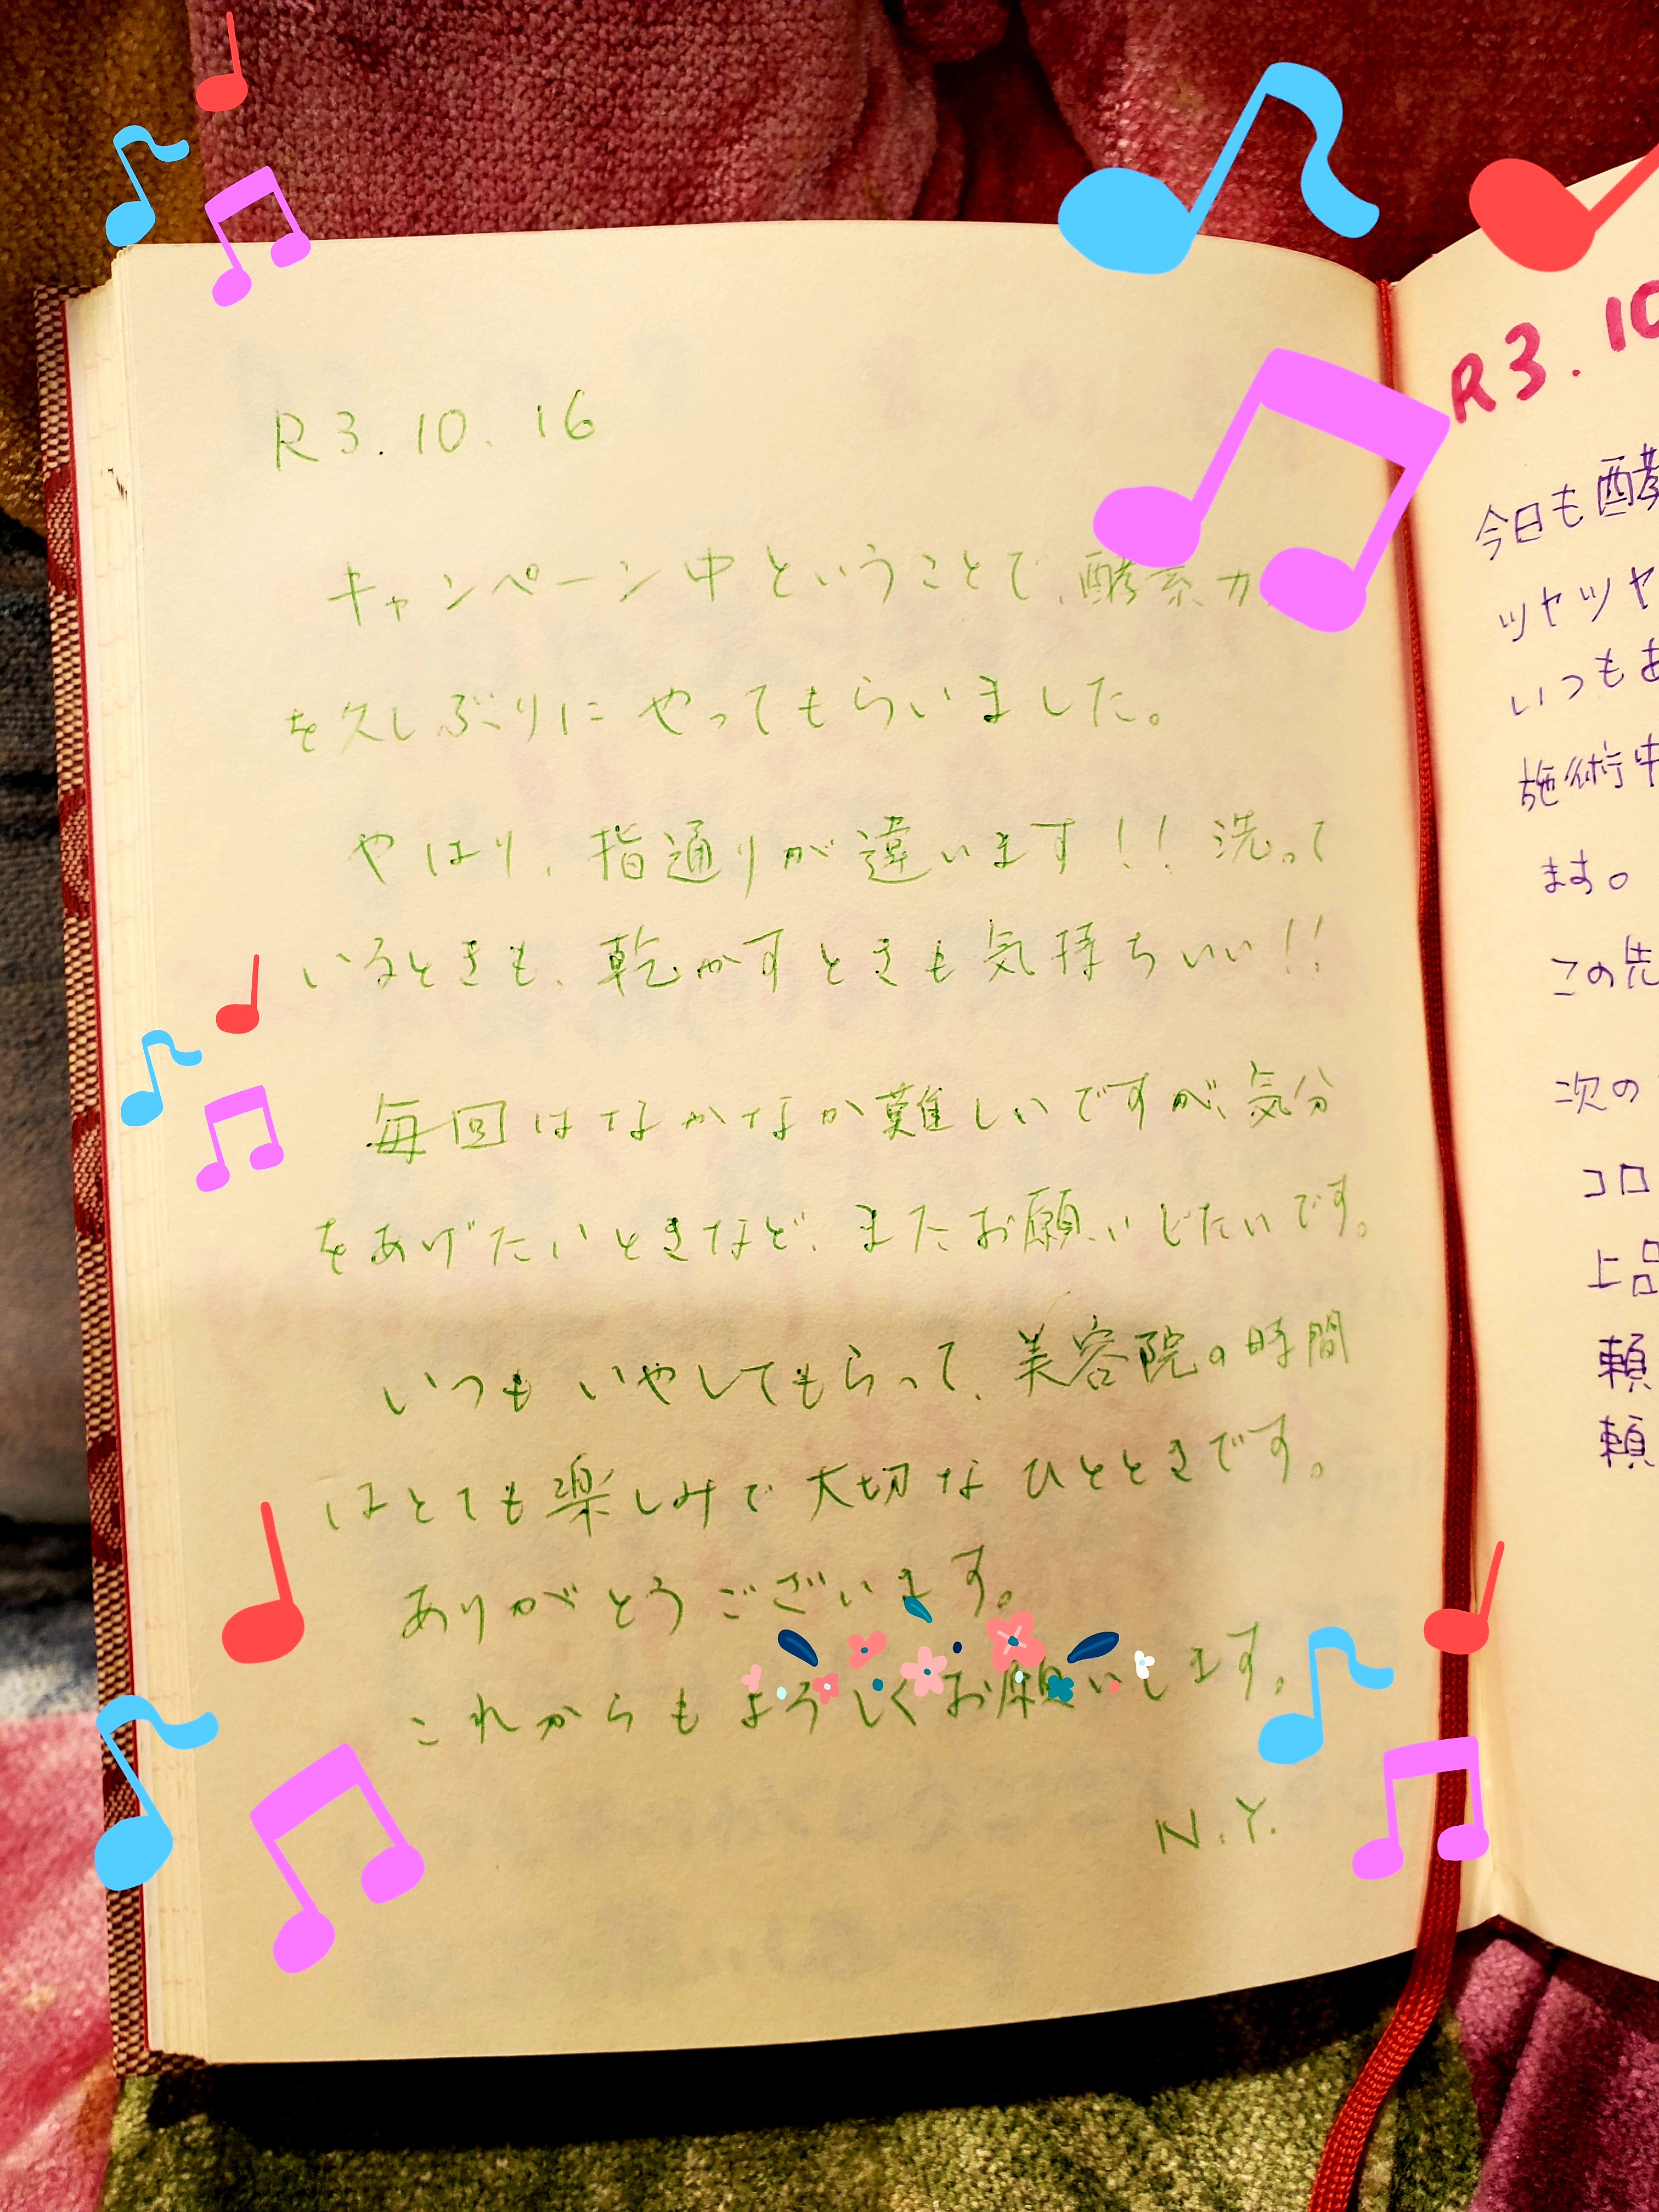 R3.10.16
キャンペーン中ということで、酵素カ
を久しぶりにやってもらいました。
やはり、指通りが違います!! 洗って
いるときも、乾かすときも気持ちいい!!
毎回はなかなか難しいですが、気分
をあげたいときなど、またお願いしたいです。
いつもいやしてもらって、美容院の時間
はとても楽しみで大切なひとときです。
ありがとうございます。
これからもよろしくお願いします。
N.Y.
R3.10
今日も酵
ツヤツヤ
いつもあ
施術中
ます。
この先
次の
コロ
上品
頼
頼